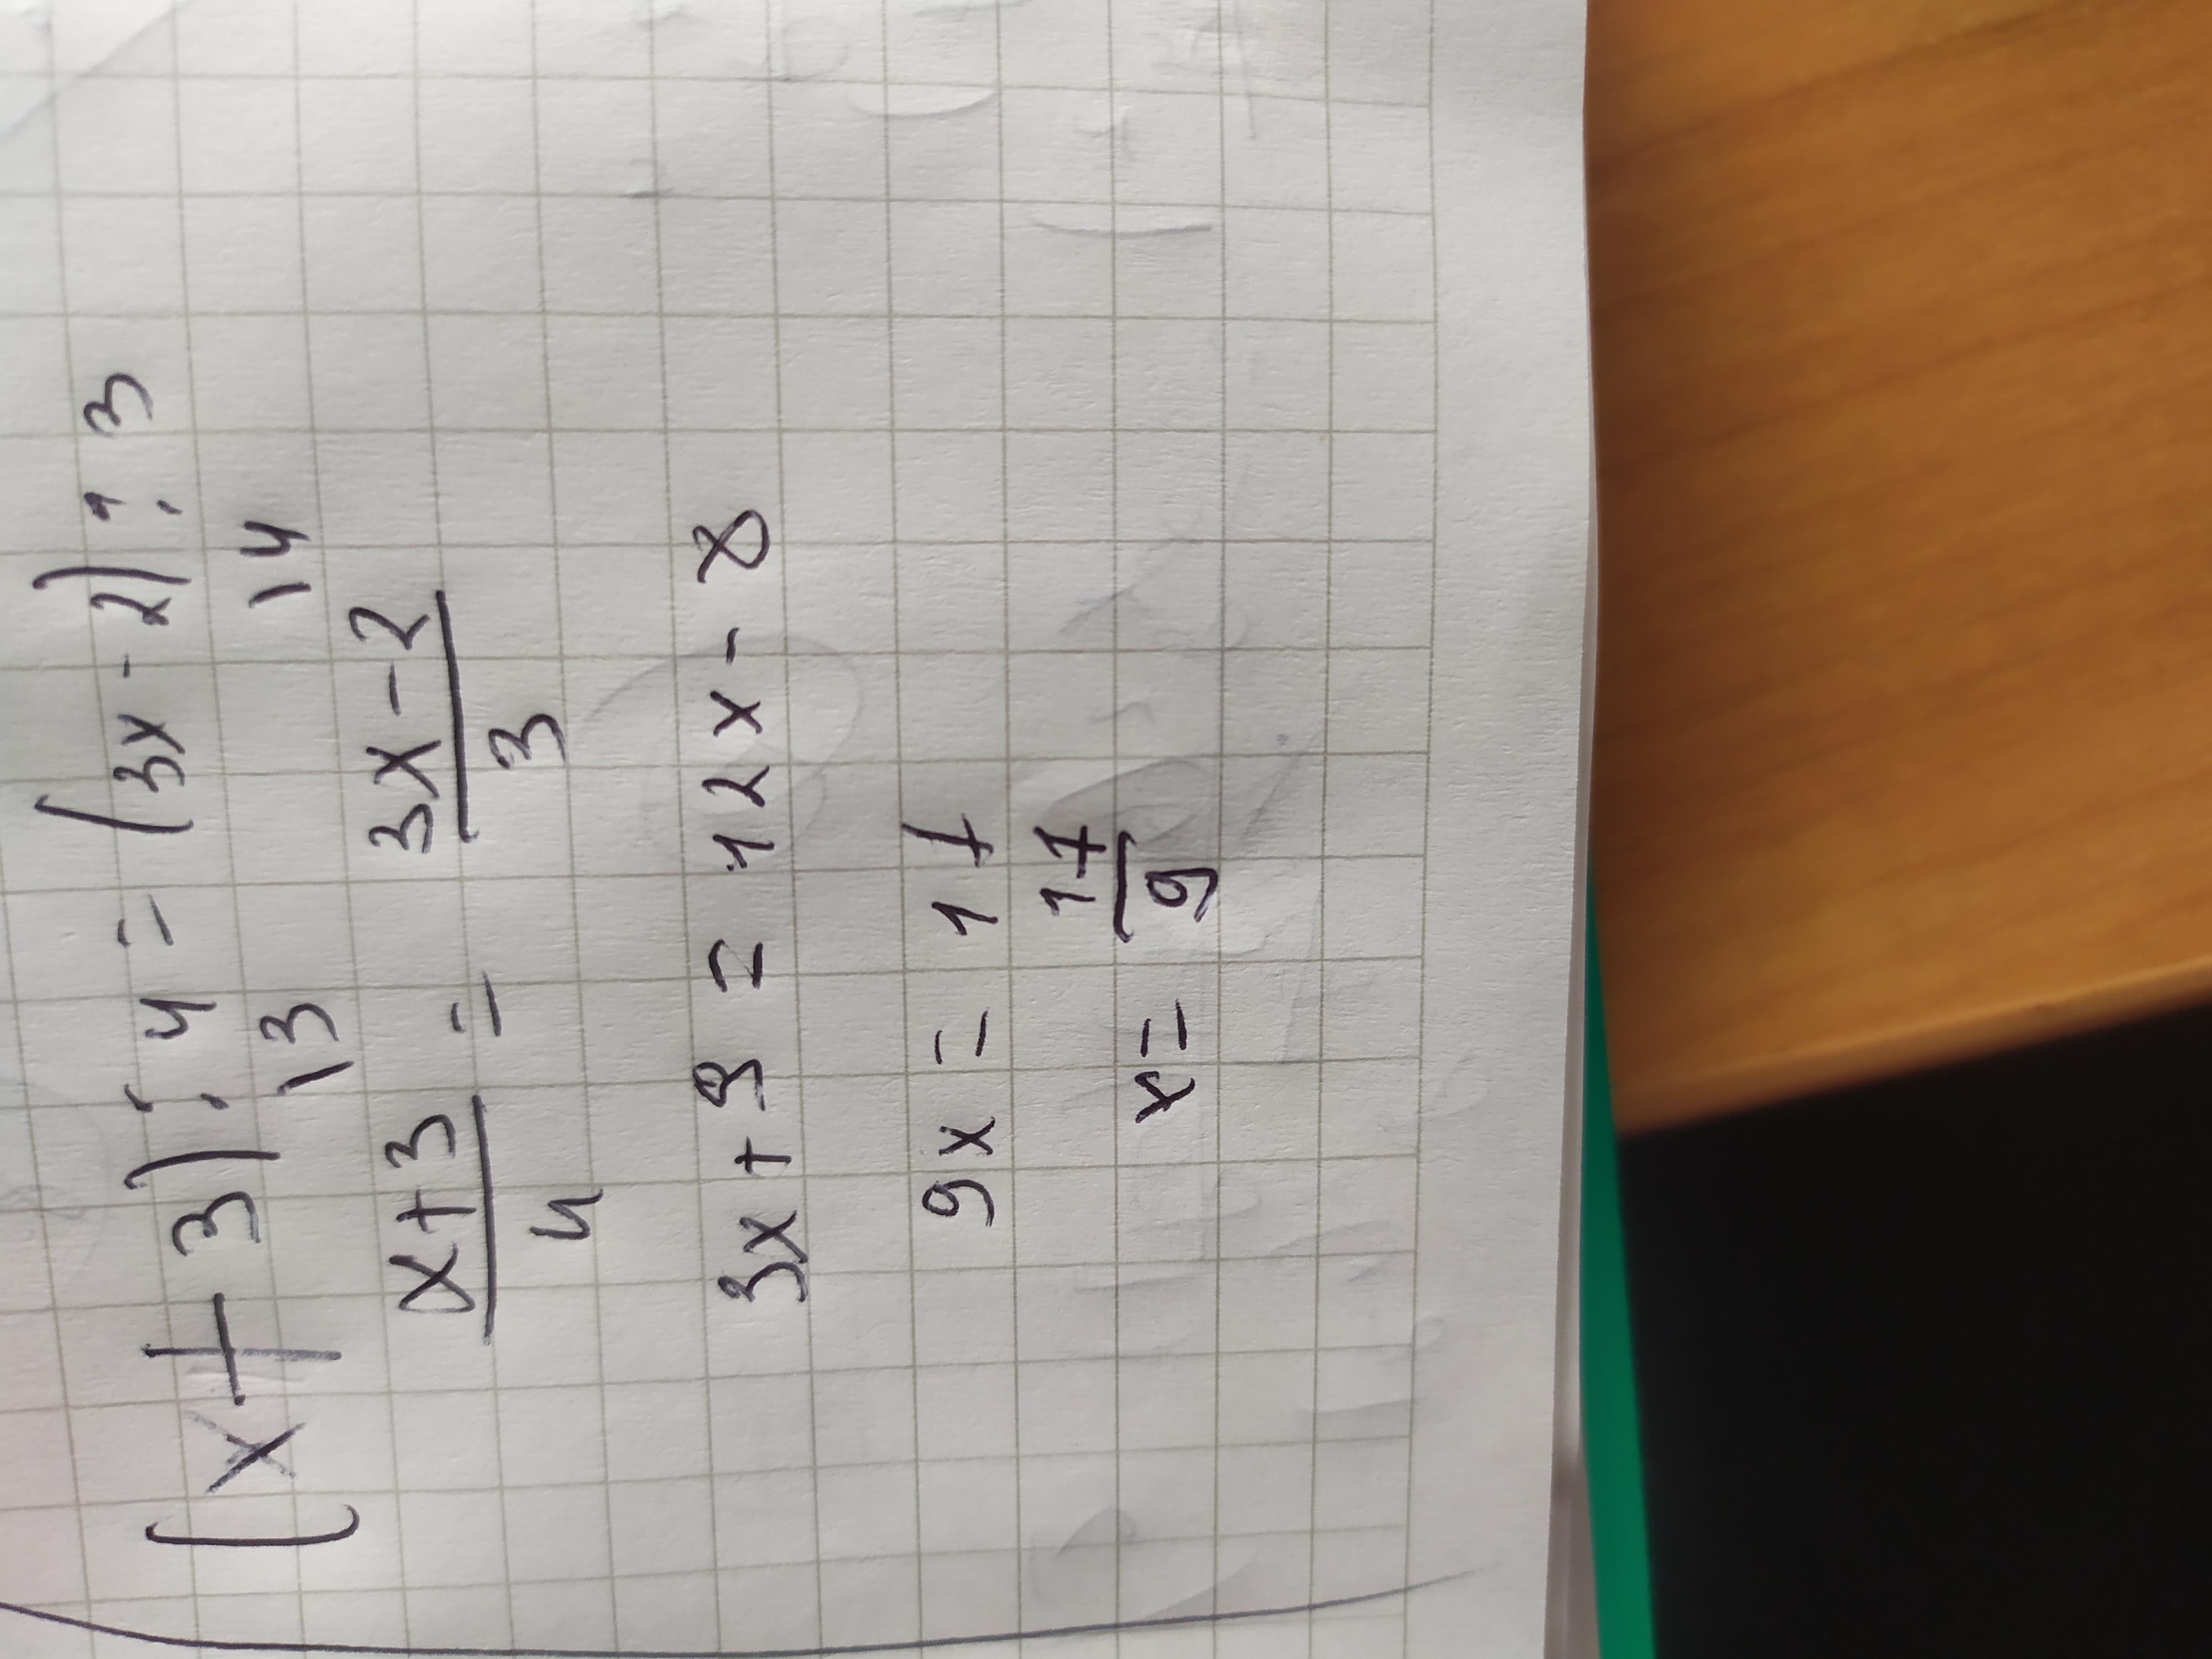 (x+3):4=(3x-2):3
\3 \4
x+3/4 = 3x-2/3
3x+9=12x-8
9x=17
x=17/9